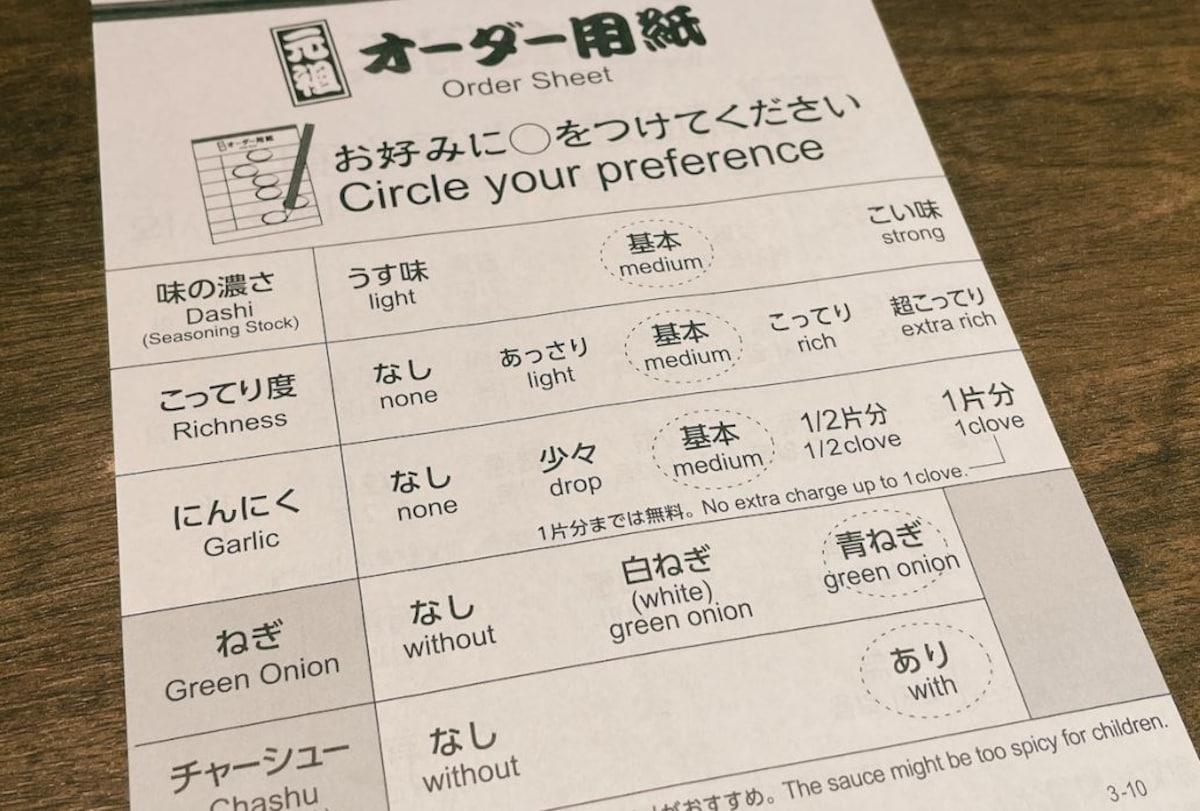 元祖 オーダー用紙
Order Sheet
オーダー用紙
お好みに○をつけてください
Circle your preference
味の濃さ うす味 基本 こい味
Dashi light medium strong
(Seasoning Stock)
こってり度 なし あっさり 基本 こってり 超こってり
Richness none light medium rich extra rich
にんにく なし 少々 基本 1/2片分 1片分
Garlic none drop medium 1/2clove 1clove
1片分までは無料。No extra charge up to 1clove.
ねぎ なし 白ねぎ 青ねぎ
Green Onion without (white) green onion
green onion
チャーシュー なし あり
Chashu without with
がおすすめ。The sauce might be too spicy for children.
3-10